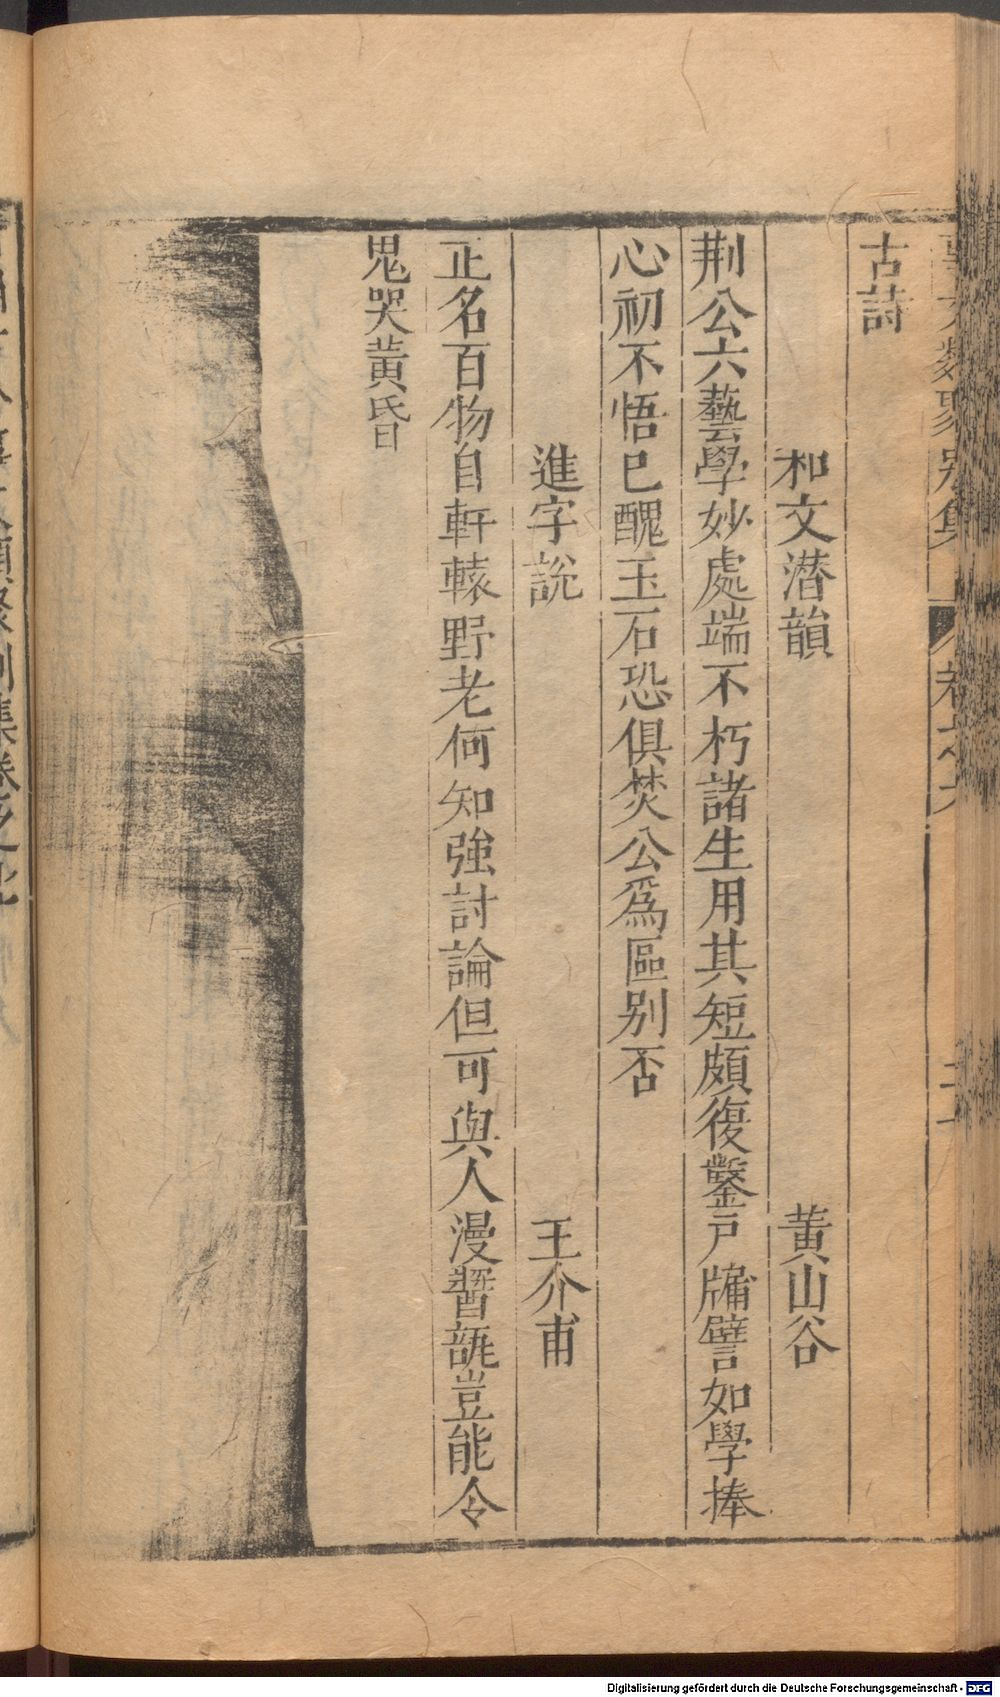 古詩
和文潛韻 黃山谷
荆公六藝學妙處端不朽諸生用其短頗復鑿戸牖譬如學捧
心初不悟已醜玉石恐俱焚公爲區别否
進字說 王介甫
正名百物自軒轅野老何知強討論但可與人漫醤瓿豈能令
鬼哭黃昏
Digitalisierung gefördert durch die Deutsche Forschungsgemeinschaft - DFG